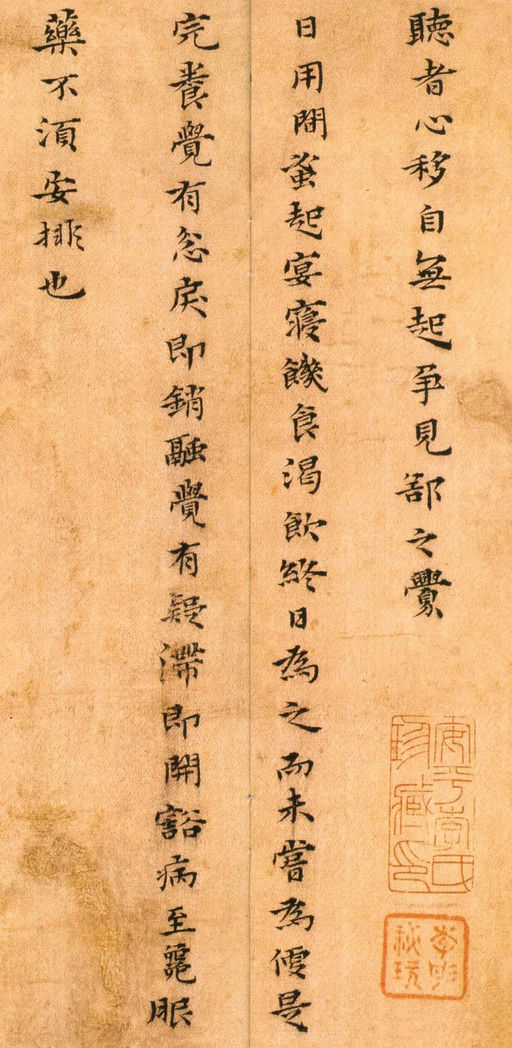 聽者心移自無起爭見鄙之釁
日用間蚤起宴寢饑食渴飲終日為之而未嘗為便是
完養覺有忿戾即銷融覺有疑滯即開豁病至服
藥不須安排也
安平李氏珍藏印